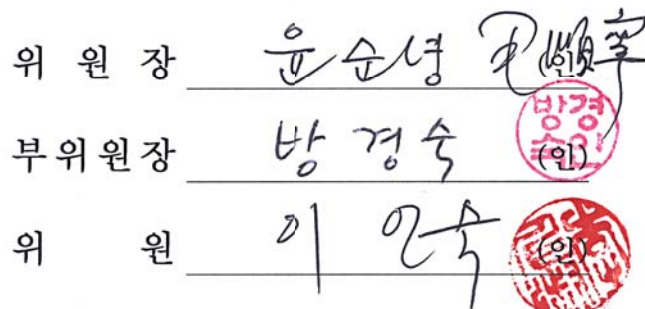 위 원 장 윤순녕 (인)
부위원장 방경숙 (인) 방경숙인
위 원 이인숙 (인)